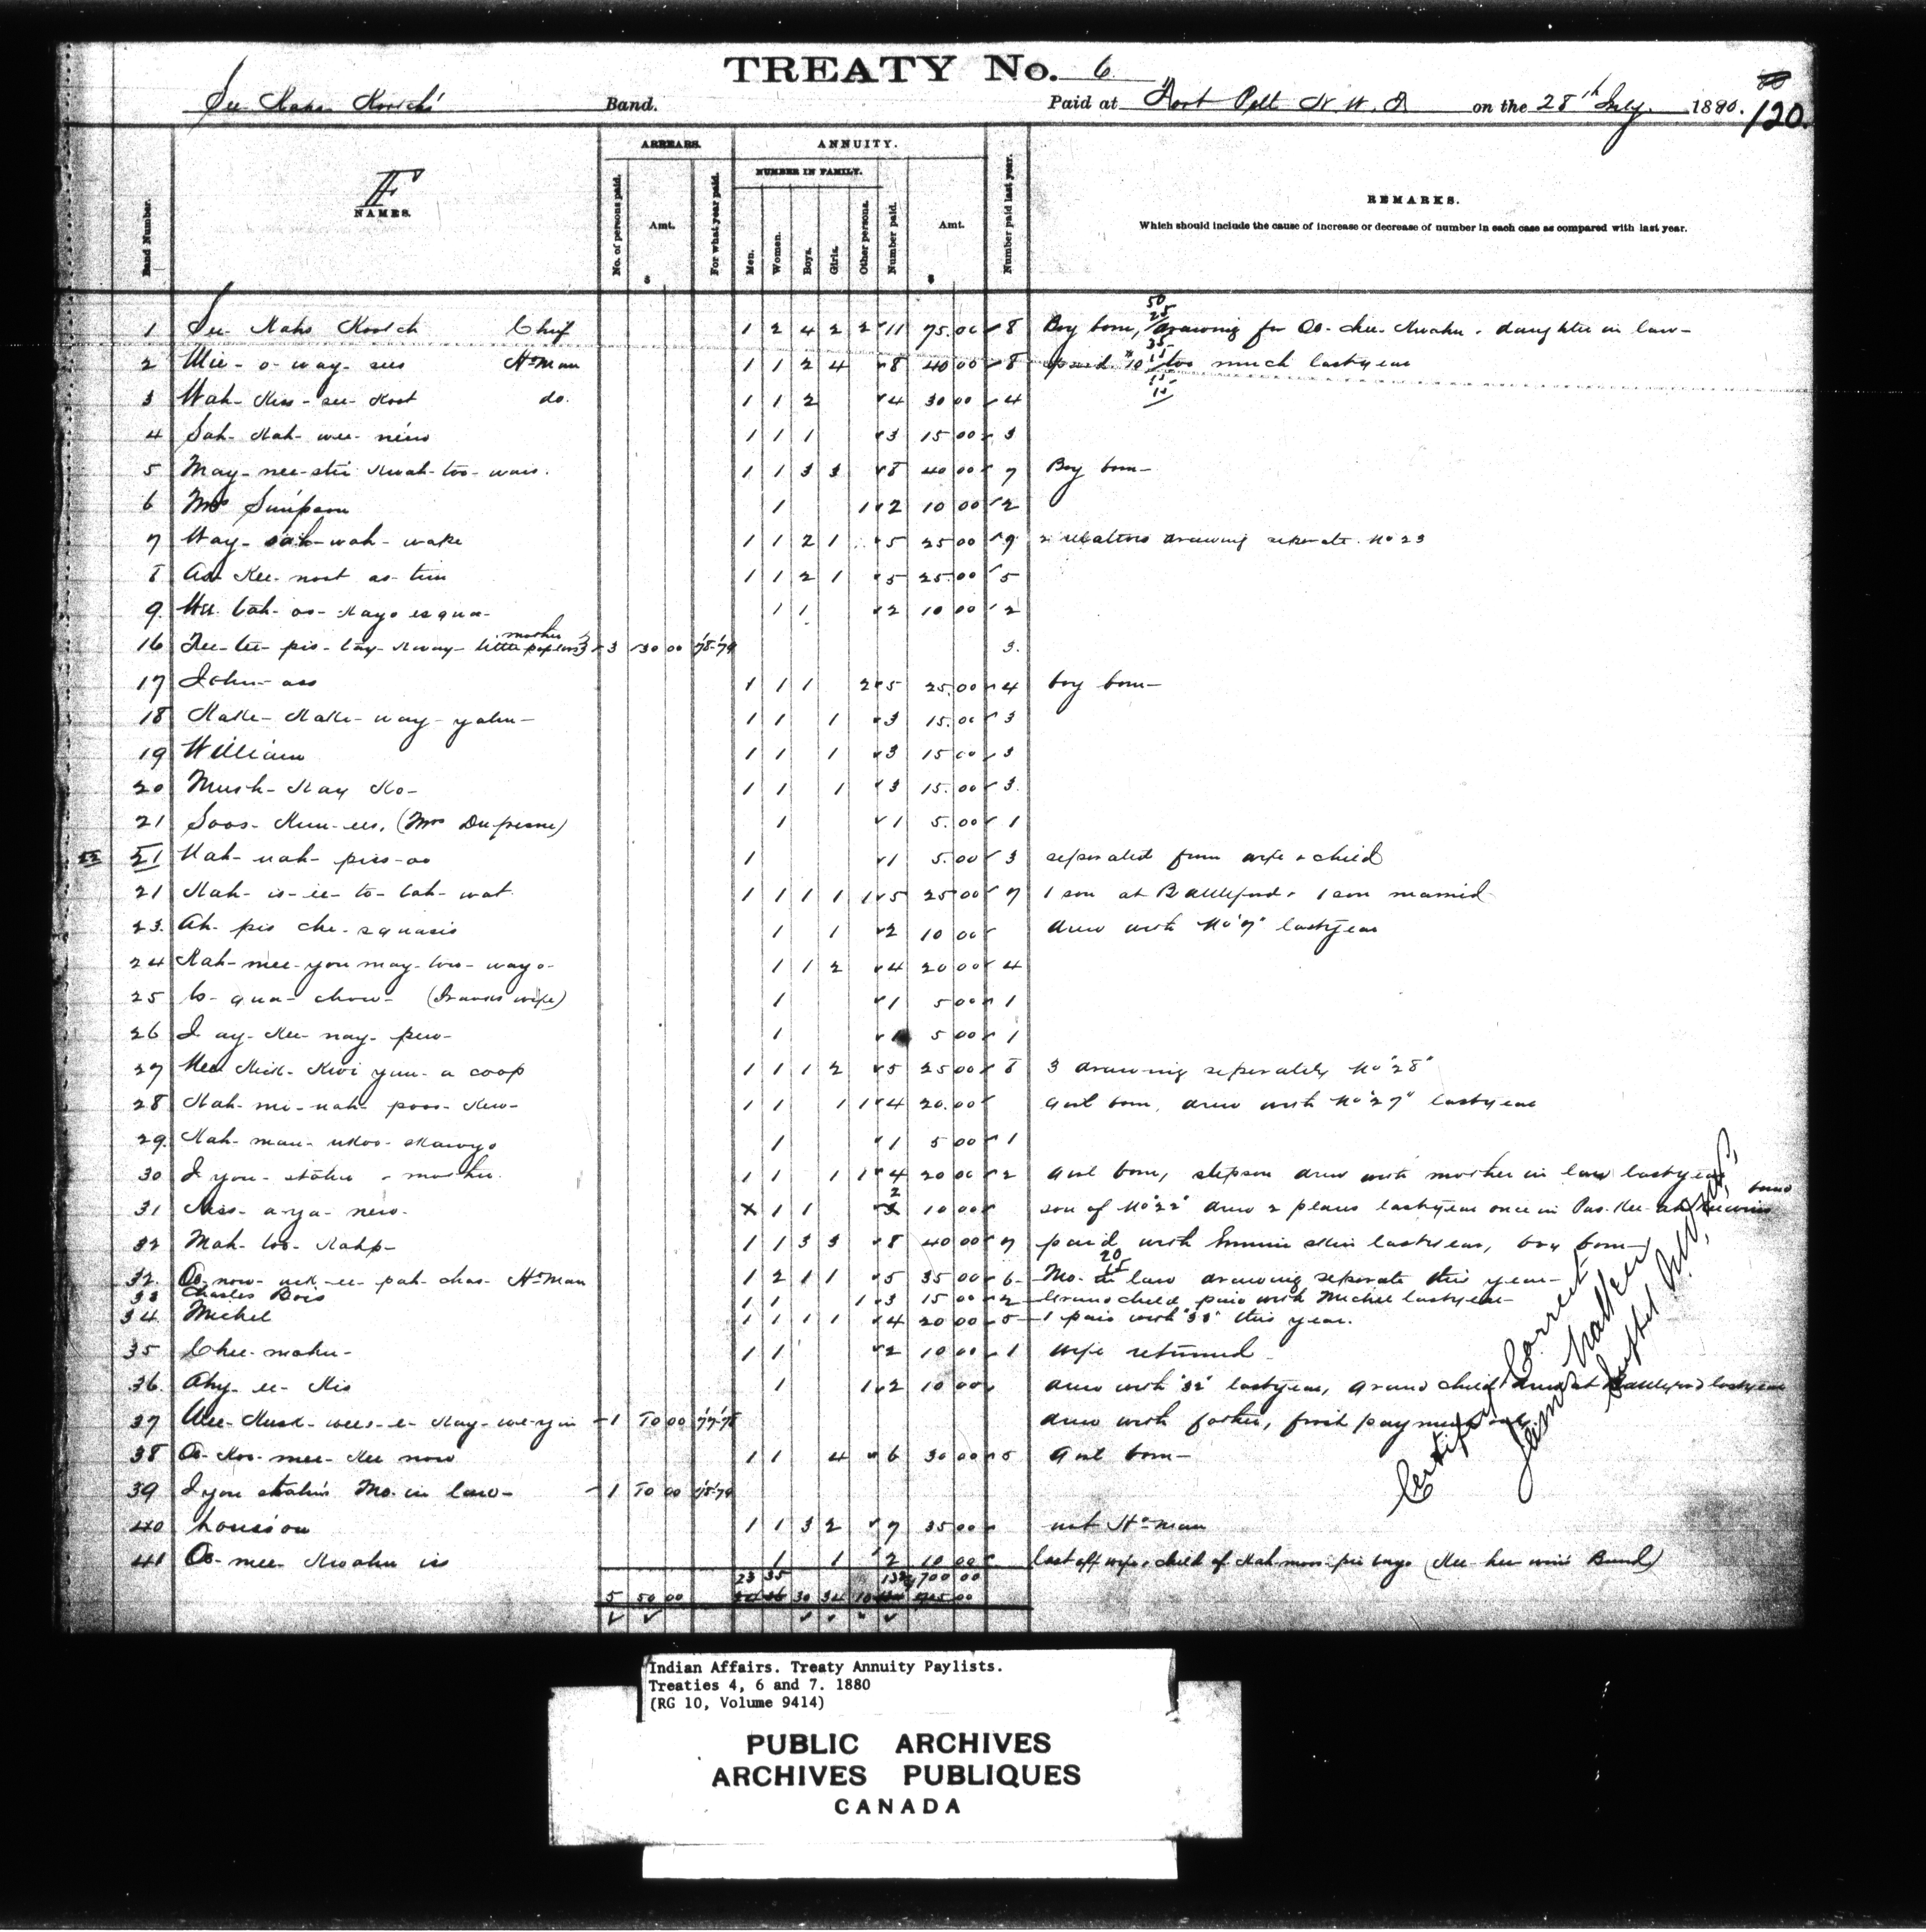 TREATY No. 6
See Kahs Kootch's Band. Paid at Fort Pitt N.W.T on the 28th July 1880. 120.
F
ARREARS. ANNUITY.
NUMBER IN FAMILY.
Band Number. NAMES. No. of persons paid. Amt. For what year paid. Men. Women. Boys. Girls. Other persons. Number paid. Amt. Number paid last year.
REMARKS.
Which should include the cause of increase or decrease of number in each case as compared with last year.
$ $
50
25
35
15
15
15
1 See Kahs Kootch Chief 1 2 4 2 2 11 75.00 8 Boy born, drawing for Oo-chee-Kwahn. daughter in law-
2 Mee-o-way-sees Hd Man 1 1 2 4 8 40 00 8 paid $10 too much last year
3 Wah-Kiss-see-Koot do. 1 1 2 4 30 00 4
4 Sah-Kah-wee-nein 1 1 1 3 15 00 3
5 May-nee-stei Kwah-too-wais. 1 1 3 3 8 40 00 7 Boy born-
6 Mrs Simpson 1 1 2 10 00 2
7 Way-sah-wah-wake 1 1 2 1 5 25 00 9 2 relatives drawing seperate. No 23
8 As-Kee-noot as-tim 1 1 2 1 5 25.00 5
9. 1 1 2 10 00 2
16 Tee-tee-pis-tay-Kway- mother 3 30 00 '78-'79 3.
17 John-ass 1 1 1 2 5 25.00 4 boy born-
18 Kake-Kake-way-yahn- 1 1 1 3 15.00 3
19 William 1 1 1 3 15 00 3
20 Mush-Kay Ko- 1 1 1 3 15.00 3.
21 Soos-Kun-ees, (Mrs Dufresne) 1 1 5.00 1
22 21 Nah-nah-piss-oo 1 1 5.00 3 seperated from wife & child
21 Kah-is-ee-to-tah-wat. 1 1 1 1 1 5 25 00 7 1 son at Battleford. 1 son married
23. Ah-pis che-squasis 1 1 2 10 00 drew with No "7" last year
24 Kah-mee-you may-too-wayo- 1 1 2 4 20 00 4
25 -qua-chow- ( wife) 1 1 5 00 1
26 I ay-Kee-nay-pew- 1 1 5 00 1
27 Kick-Kwi yun-a coop 1 1 1 2 5 25 00 8 3 drawing seperately No "28"
28 Kah-mi-nah-poos-Kew- 1 1 1 1 4 20.00 Girl born, drew with No "27" last year
29. Kah-man-ukoo-skawyo 1 1 5 00 1
30 I you-stahn & mother. 1 1 1 1 4 20 00 2 Girl born, stepson drew with mother in law last year
31 Ness-a-ya-new- x 1 1 2 10 00 son of No "22" drew 2 places last year once in Pas-Kee-ah-Kee-wins band
32 Mah-too-Kahp- 1 1 3 3 8 40 00 7 paid with skin last year, boy born-
20
15
32. Oo-now-uck-ee-pah-chas- Hd Man 1 2 1 1 5 35 00 6- Mo. in law drawing seperate this year-
33 Charles Bois 1 1 1 3 15 00 2 Grand child paid with Michel last year-
34 Michel 1 1 1 1 4 20 00 5 1 paid with "33" this year.
35 Chee-mahn- 1 1 2 10 00 1 wife returned-
36. Ahy-ee-Kis 1 1 2 10 00 drew with "32" last year, Grand child drew at Battleford last year
37 Wee-Kusk-wees-e-Kay-we-yin 1 10 00 '77-'78 drew with father, first payment
38 Oo-Koo-mee-Kee now 1 1 4 6 30 00 5 Girl born-
39 I you stahn's Mo. in law- 1 10 00 '78-'79
40 Louison 1 1 3 2 7 35 00 not Hd man
41 Oo-mee-Kwahn is 1 1 2 10 00 Cast off wife & child of Kah-moos-pis (Kee-hee-win's Band)
23 35 132 700 00
5 50 00 30 34 10
Certified Correct
James Walker
Supt
Indian Affairs. Treaty Annuity Paylists.
Treaties 4, 6 and 7. 1880
(RG 10, Volume 9414)
PUBLIC ARCHIVES
ARCHIVES PUBLIQUES
CANADA